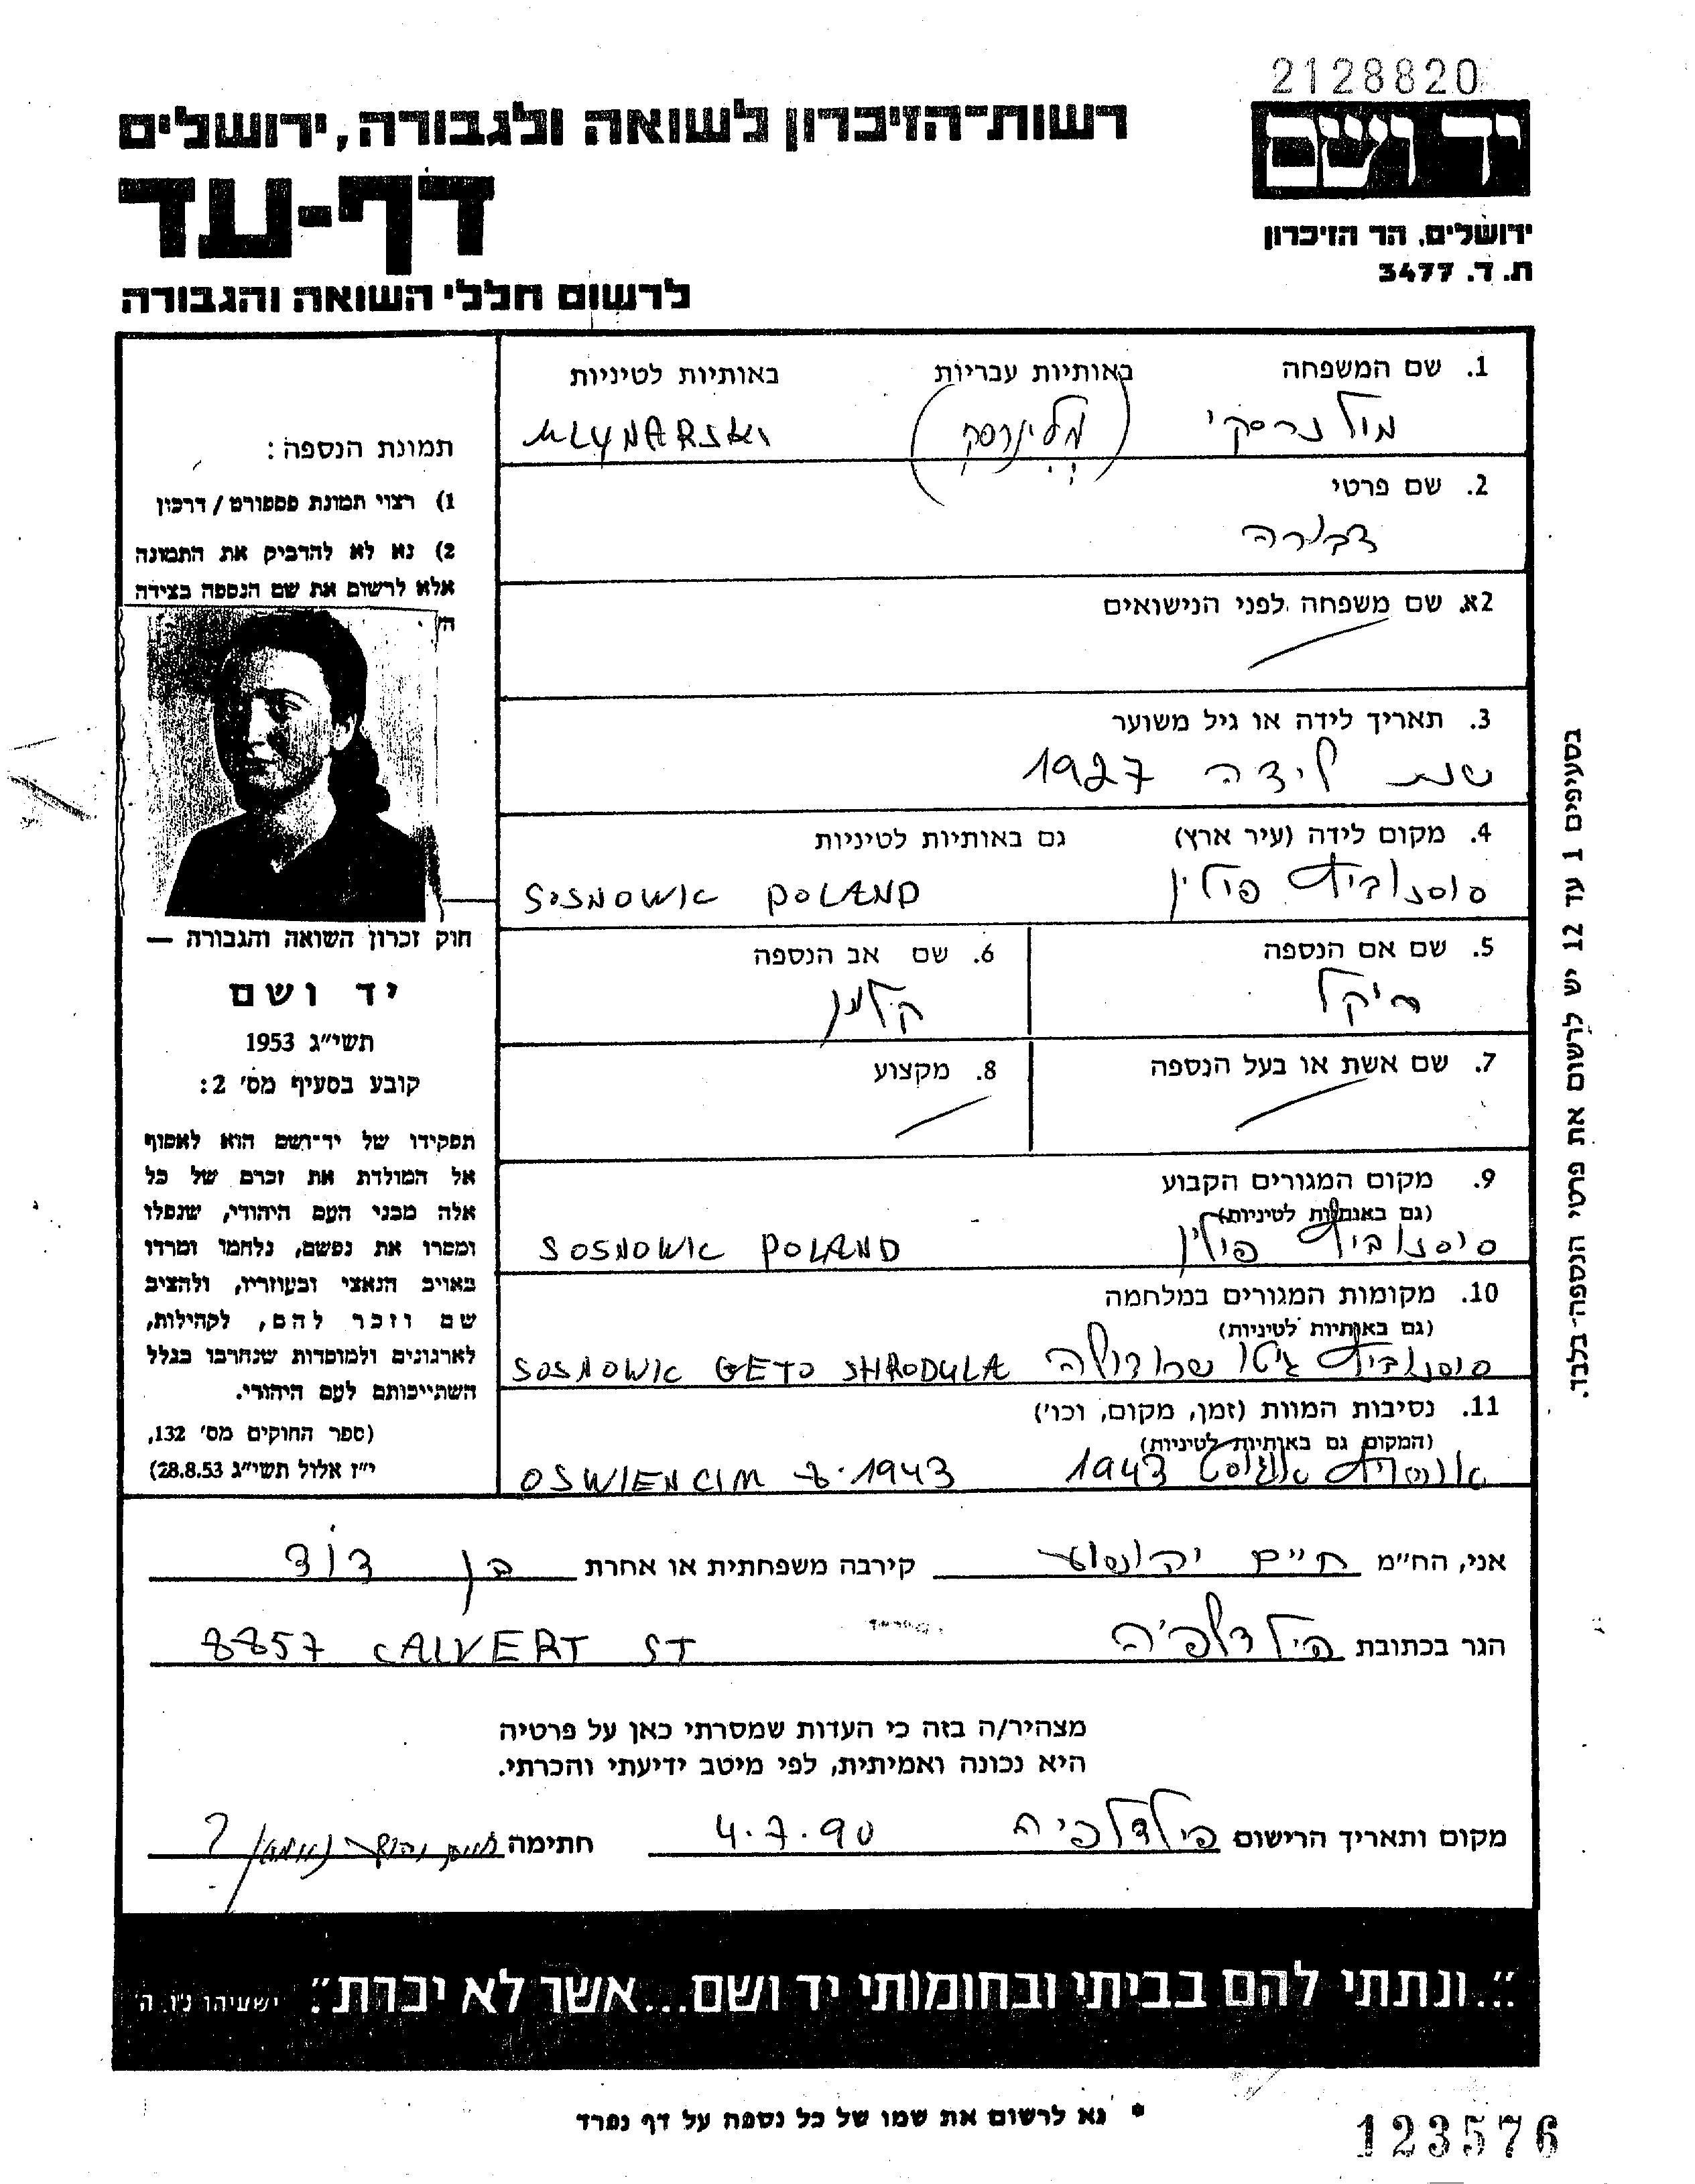 2128820
רשות־הזיכרון לשואה ולגבורה, ירושלים
יד ושם
דף-עד
ירושלים, הר הזיכרון
ת. ד. 3477
לרשום חללי השואה והגבורה
1. שם המשפחה באותיות עבריות באותיות לטיניות
מולנרסקי MLYNARSKI
2. שם פרטי
דבורה
2א. שם משפחה לפני הנישואים
3. תאריך לידה או גיל משוער
שנת לידה 1927
4. מקום לידה (עיר ארץ) גם באותיות לטיניות
סוסנוביץ פולין SOSNOWIC POLAND
5. שם אם הנספה
רייקל
6. שם אב הנספה
קלמן
7. שם אשת או בעל הנספה
8. מקצוע
9. מקום המגורים הקבוע
(גם באותיות לטיניות)
סוסנוביץ פולין SOSNOWIC POLAND
10. מקומות המגורים במלחמה
(גם באותיות לטיניות)
סוסנוביץ גיטו שרודולה SOSNOWIC GETO SHRODULA
11. נסיבות המוות (זמן, מקום, וכו')
(המקום גם באותיות לטיניות)
אושויץ אוגוסט 1943 OSWIENCIM 8.1943
תמונת הנספה:
1) רצוי תמונת פספורט / דרכון
2) נא לא להדביק את התמונה
אלא לרשום את שם הנספה בצידה
חוק זכרון השואה והגבורה —
יד ושם
תשי"ג 1953
קובע בסעיף מס' 2:
תפקידו של יד־ושם הוא לאסוף
אל המולדת את זכרם של כל
אלה מבני העם היהודי, שנפלו
ומסרו את נפשם, נלחמו ומרדו
באויב הנאצי ובעוזריו, ולהציב
שם וזכר להם, לקהילות,
לארגונים ולמוסדות שנחרבו בגלל
השתייכותם לעם היהודי.
(ספר החוקים מס' 132,
י"ז אלול תשי"ג 28.8.53)
בסעיפים 1 עד 12 יש לרשום את פרטי הנספה בלבד.
אני, הח"מ חיים יהושע קירבה משפחתית או אחרת בן דוד
הגר בכתובת פילדלפיה 8857 CALVERT ST
מצהיר/ה בזה כי העדות שמסרתי כאן על פרטיה
היא נכונה ואמיתית, לפי מיטב ידיעתי והכרתי.
מקום ותאריך הרישום פילדלפיה 4.7.90 חתימה חיים יהושע
"...ונתתי להם בביתי ובחומותי יד ושם...אשר לא יכרת". ישעיהו נ"ו, ה'
* נא לרשום את שמו של כל נספה על דף נפרד
123576